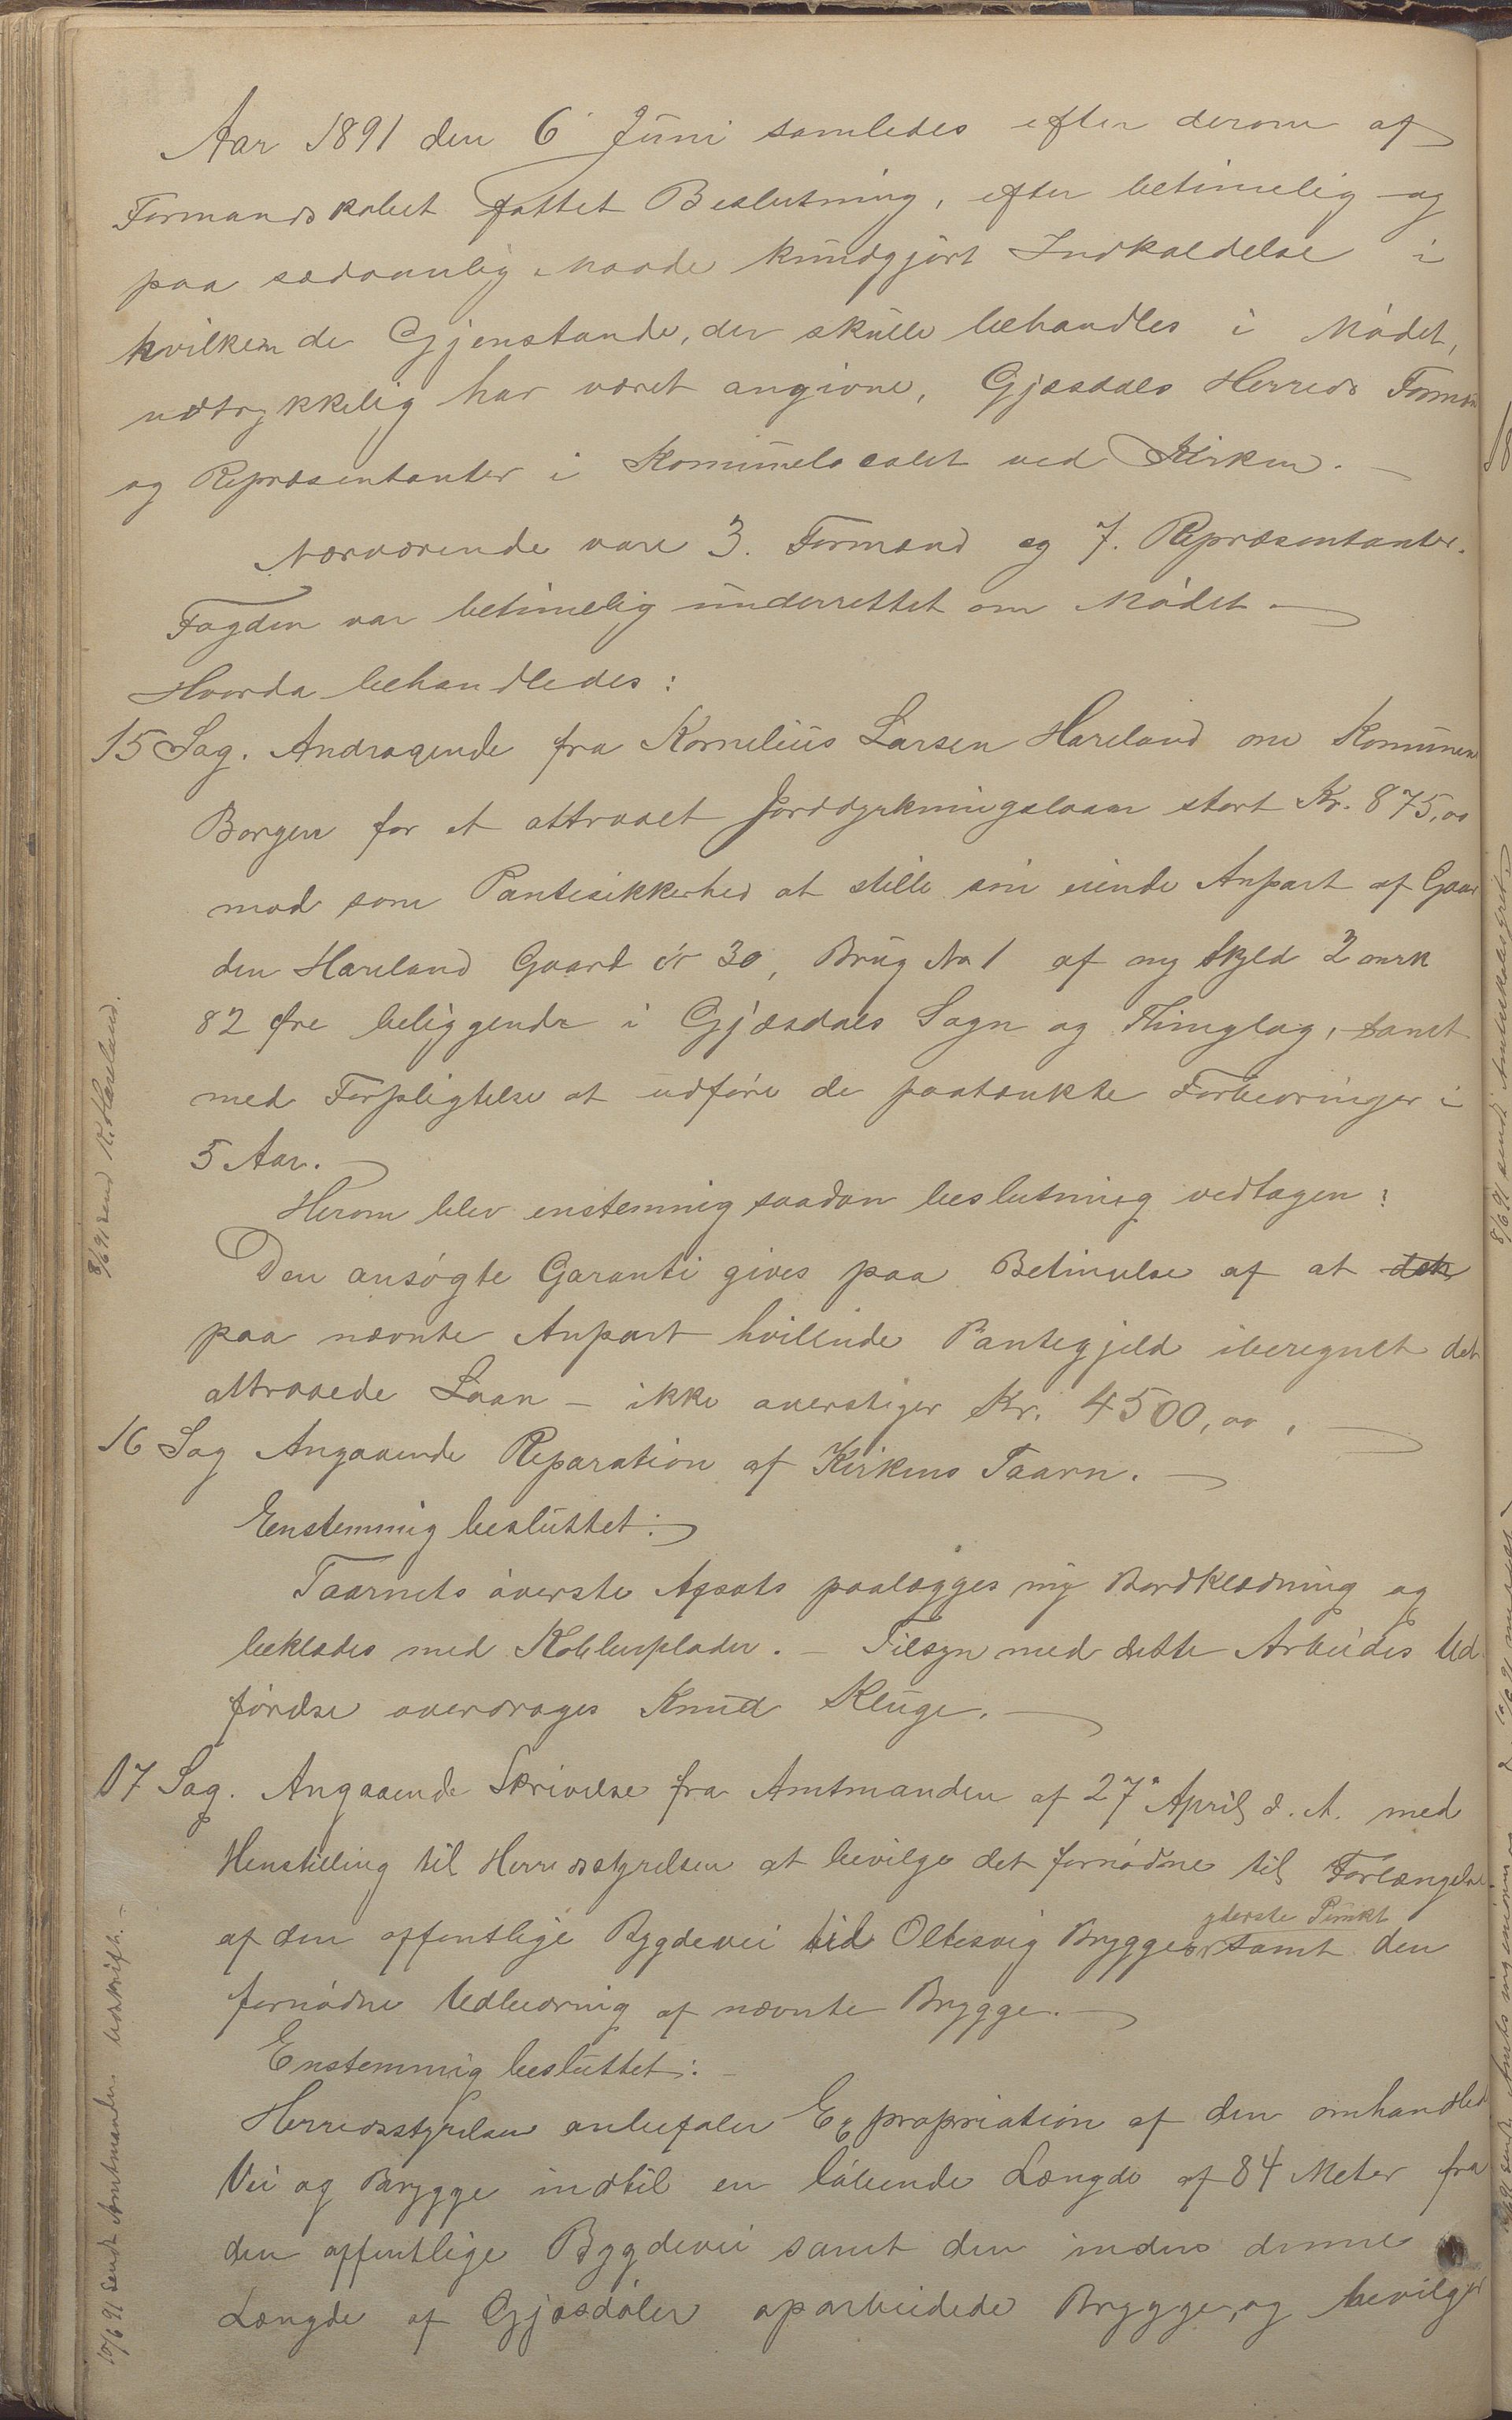 Aar 1891 den 6 Juni samledes efter derom af
Formandskabet fattet Beslutning, efter betimelig og
paa sædvanlig Maade kundgjört Indkaldelse i
hvilken de Gjenstande, der skulle behandles i Mödet,
udtrykkelig har været angivne, Gjæsdals Herreds Formæn
og Repræsentanter i Komunelocalet ved Kirken. —
Nærværende vare 3. Formænd og 7. Repræsentanter.
Fogden var betimelig underrettet om Mödet —
Hvorda behandledes:
15 Sag. Andragende fra Kornelius Larsen Hareland om Komunens
Borgen for et attraaet Jorddyrkningslaan stort Kr. 875,00
mod som Pantesikkerhed at stille sin eiende Anpart af Gaar
den Hareland Gaard Nr 30, Brug No 1 af ny Skyld 2 mrk
82 Øre beliggende i Gjæsdals Sogn og Thinglag, samt
med Forpligtelse at udföre de paatænkte Forbedringer i
5 Aar. —
Herom blev enstemmig saadan beslutning vedtagen:
Den ansögte Garanti gives paa Betingelse af at den
paa nævnte Anpart hvilende Pantegjeld iberegnet det
attraaede Laan — ikke overstiger Kr. 4500,00. —
16 Sag Angaaende Reparation af Kirkens Taarn. —
Eenstemmig besluttet:
Taarnets överste Afsats paalægges ny Bordklædning og
beklædes med Kobberplader. — Tilsyn med dette Arbeides Ud
förelse overdrages Knud Kluge. —
17 Sag. Angaaende Skrivelse fra Amtmanden af 27 April d. A. med
Henstilling til Herredsstyrelsen at bevilge det fornödne til Forlængelse
af den offentlige Bygdevei til Oltesvig Brygges yderste Punkt samt den
fornödne Udbedring af nævnte Brygge. —
Enstemmig besluttet: —
Herredsstyrelsen anbefaler Expropriation af den omhandlede
Vei og Brygge indtil en löbende Længde af 84 Meter fra
den offentlige Bygdevei samt den inden denne
Længde af Gjæsdöler oparbeidede Brygge, og bevilger
8/6 91 send K. Hareland.
10/6 91 Sendt Amtmanden Udskrift. —